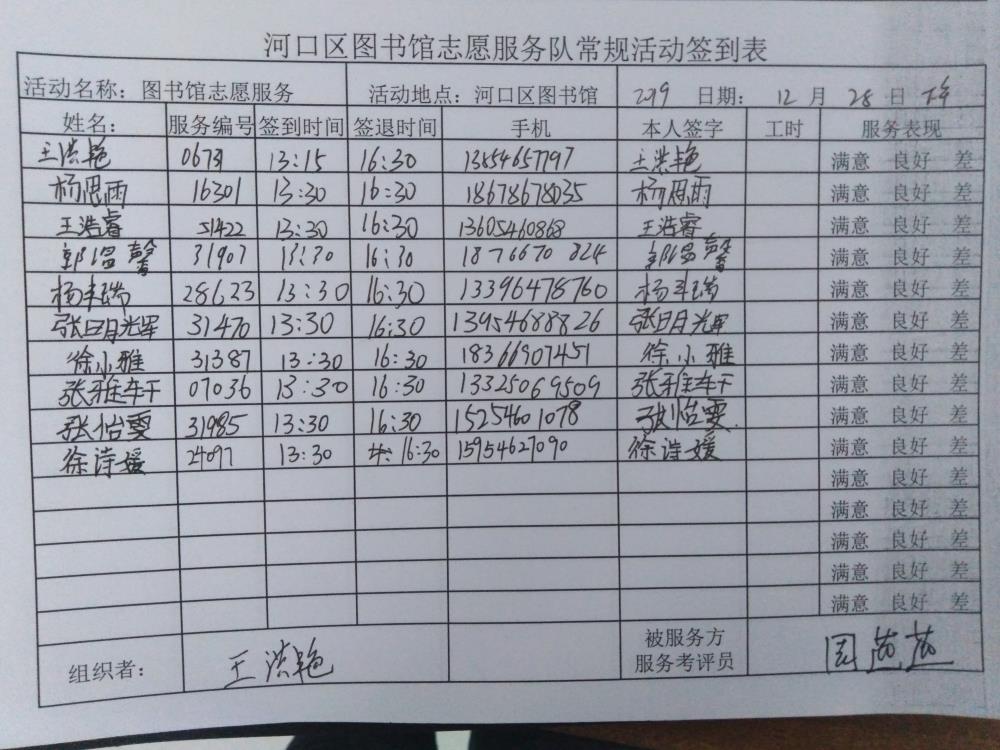 河口区图书馆志愿服务队常规活动签到表
活动名称：图书馆志愿服务 活动地点：河口区图书馆 2019 日期： 12 月 28 日 下午
姓名： 服务编号 签到时间 签退时间 手机 本人签字 工时 服务表现
王洪艳 13:15 16:30 13854657797 王洪艳 满意 良好 差
杨思雨 16301 13:30 16:30 18678678035 杨思雨 满意 良好 差
王浩睿 51422 13:30 16:30 13605460868 王浩睿 满意 良好 差
郭温馨 31907 13:30 16:30 1876670824 郭温馨 满意 良好 差
杨丰瑞 28623 13:30 16:30 13396478760 杨丰瑞 满意 良好 差
张明辉 31470 13:30 16:30 13954688826 张明辉 满意 良好 差
徐小雅 31387 13:30 16:30 18366907451 徐小雅 满意 良好 差
张雅轩 07036 13:30 16:30 13325069509 张雅轩 满意 良好 差
张怡雯 31985 13:30 16:30 15254601078 张怡雯 满意 良好 差
徐诗媛 24097 13:30 16:30 15954627090 徐诗媛 满意 良好 差
满意 良好 差
满意 良好 差
满意 良好 差
满意 良好 差
满意 良好 差
组织者： 王洪艳 被服务方
服务考评员 周茜茜